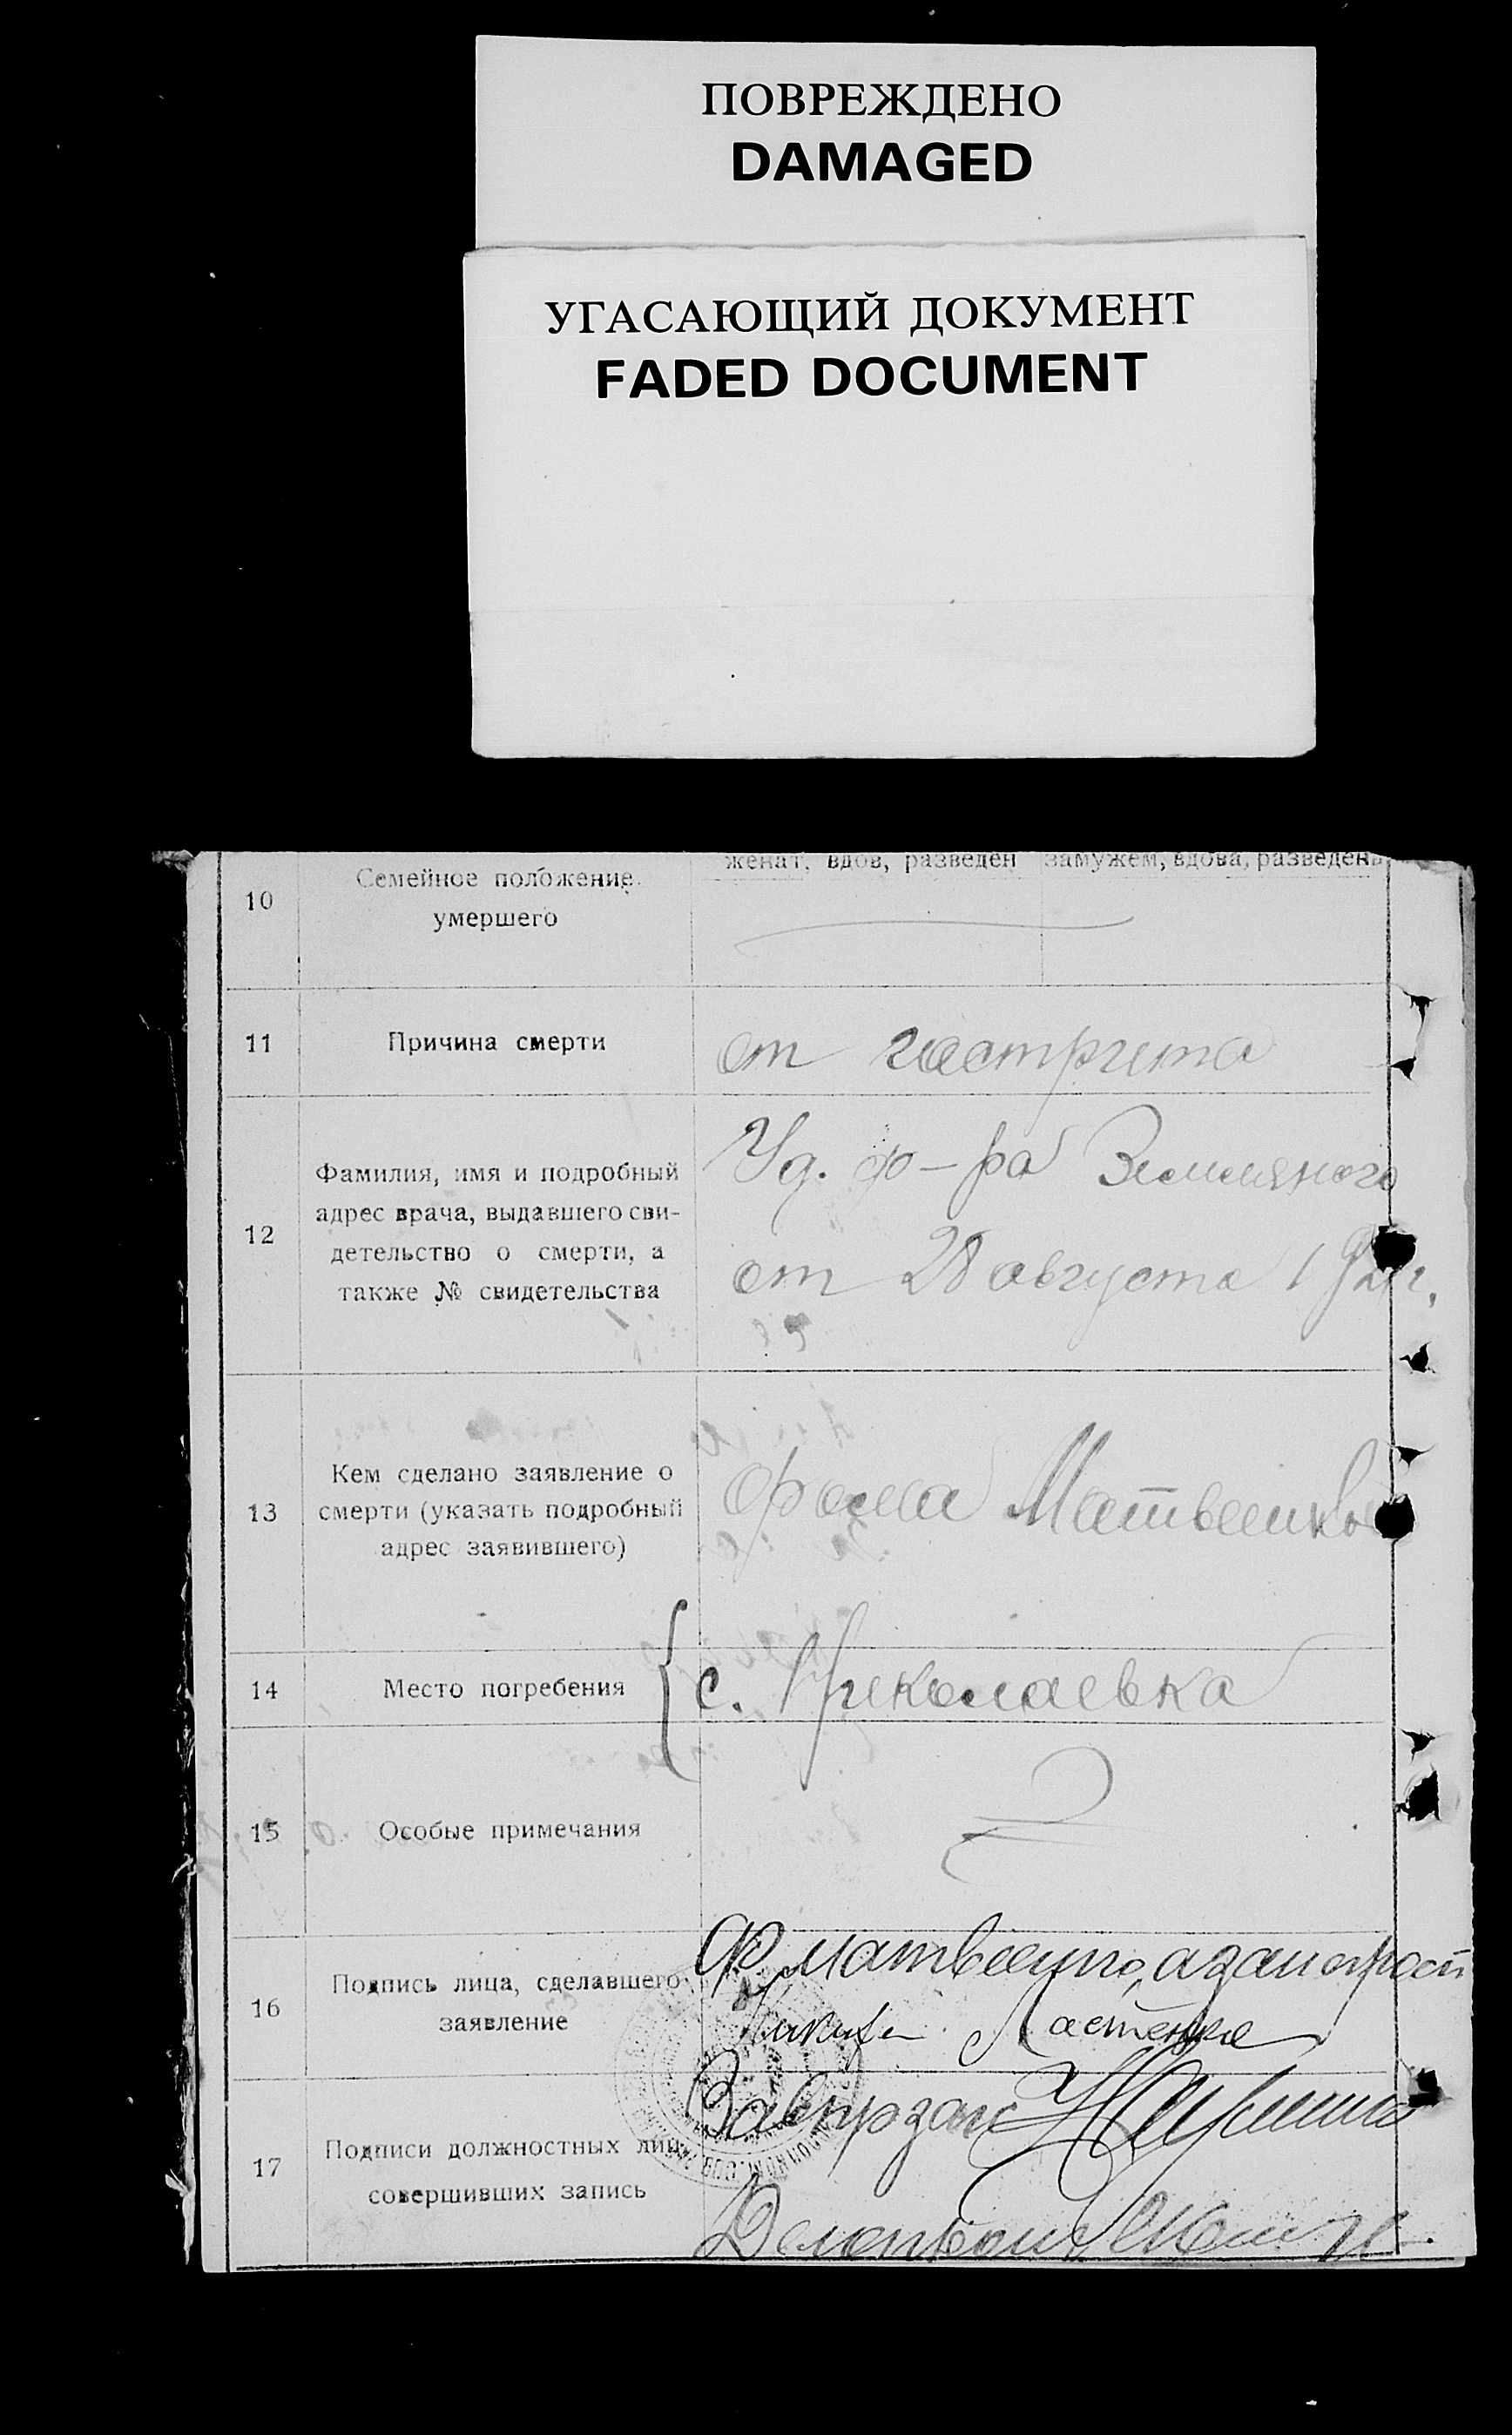 ПОВРЕЖДЕНО
DAMAGED
УГАСАЮЩИЙ ДОКУМЕНТ
FADED DOCUMENT
женат, вдов, разведен замужем, вдова, разведена
10 Семейное положение
умершего
11 Причина смерти от гастрита
12 Фамилия, имя и подробный
адрес врача, выдавшего сви-
детельство о смерти, а
также № свидетельства
Уд. ф-ра Земляного
от 28 августа
13 Кем сделано заявление о
смерти (указать подробный
адрес заявившего)
Фома Матвеенко
14 Место погребения с. Николаевка
15 Особые примечания
16 Подпись лица, сделавшего
заявление
Ф Матвеенко, а за неграмот
17 Подписи должностных лиц,
совершивших запись
Завирзагс
Делопроизв